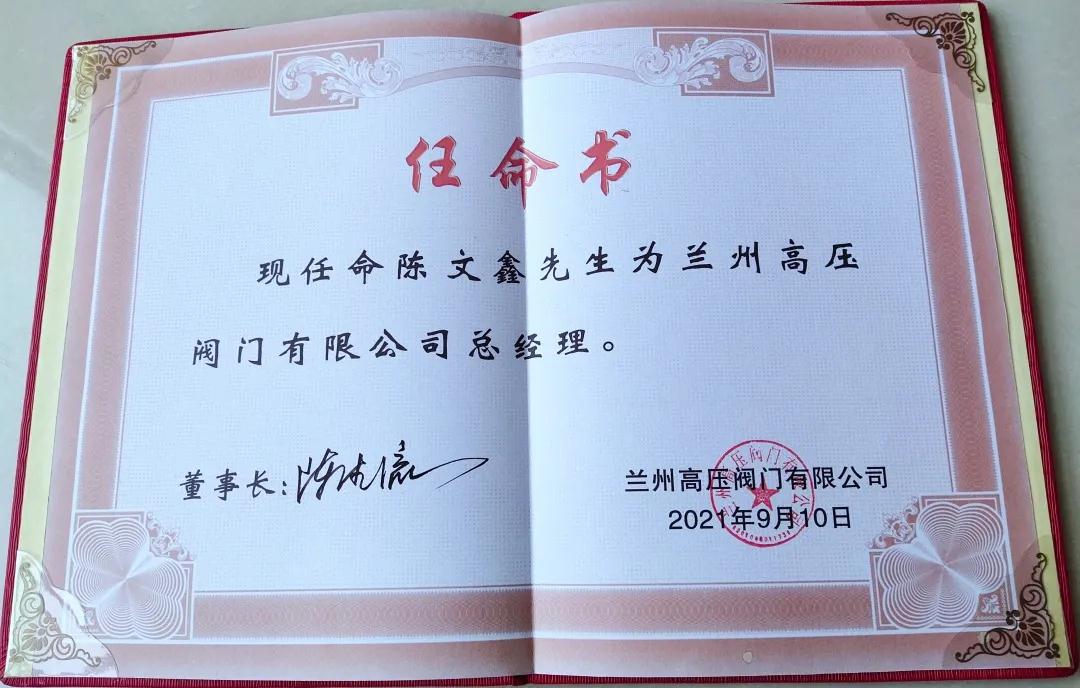 任命书
现任命陈文鑫先生为兰州高压
阀门有限公司总经理。
董事长:
兰州高压阀门有限公司
2021年9月10日
兰州高压阀门有限公司